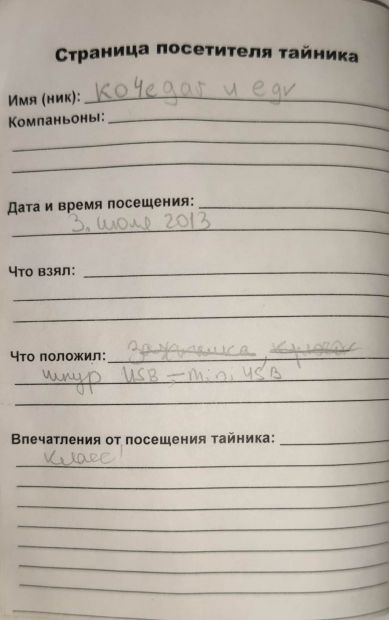 Страница посетителя тайника
Имя (ник): кочегаг и egr
Компаньоны:
Дата и время посещения:
3. июле 2013
Что взял:
Что положил: зажималка,
шнур USB – mini USB
Впечатления от посещения тайника:
Класс!